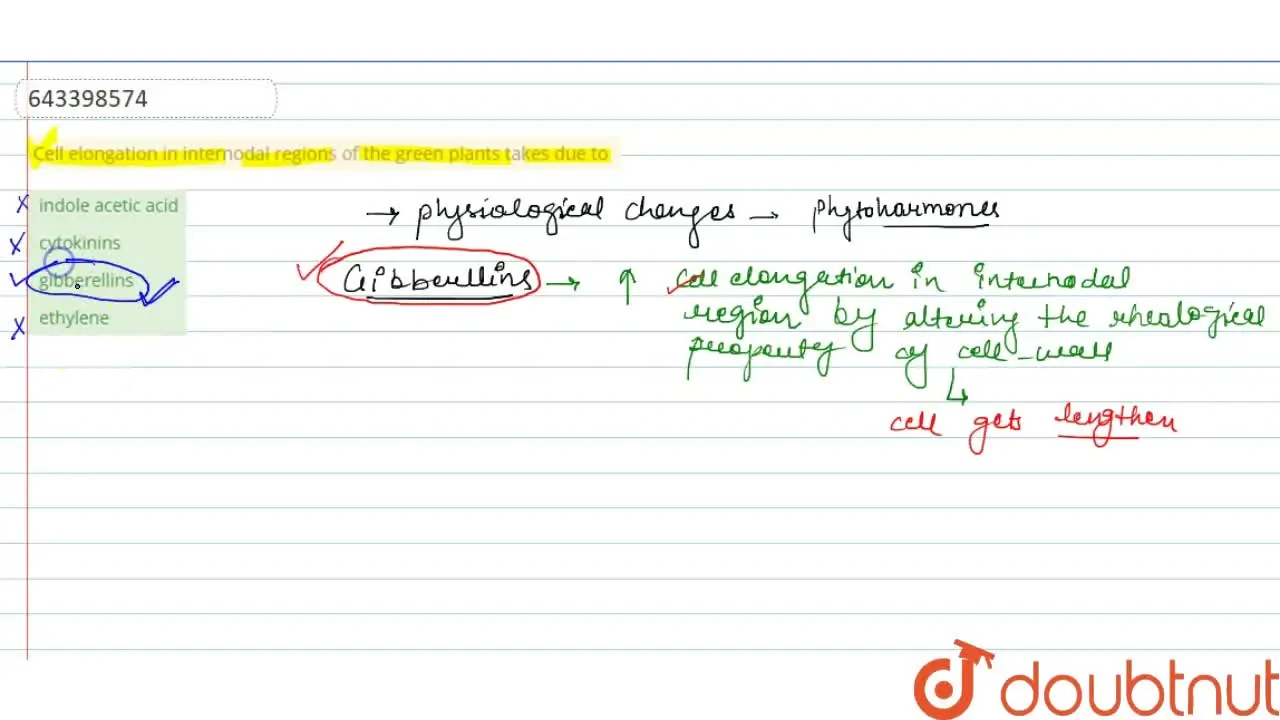 643398574
Cell elongation in internodal regions of the green plants takes due to
X indole acetic acid
X cytokinins
✓ gibberellins ✓
X ethylene
→ physiological changes → Phytohormones
✓ Gibberllins → ↑ cell elongation in internodal
region by altering the rheological
property of cell-wall
↳
cell gets lengthen
doubtnut